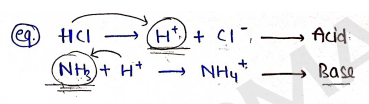 eg. HCl → H⁺ + Cl⁻ → Acid
NH₃ + H⁺ → NH₄⁺ → Base